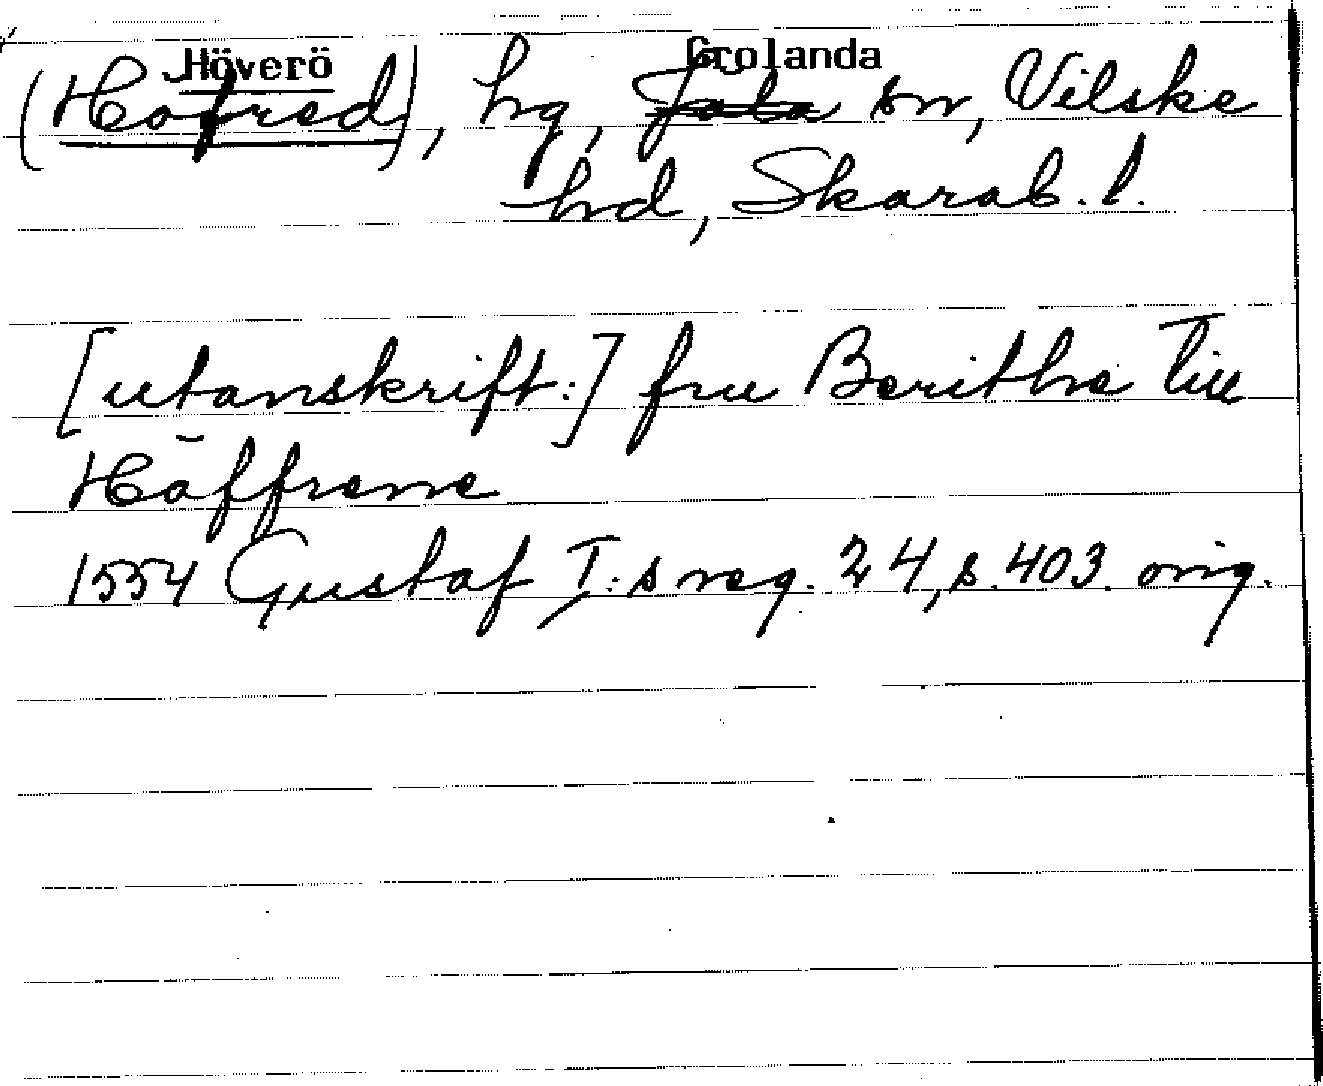 Höverö Grolanda
(Hofred), hg, Jäla sn, Vilske
hd, Skarab. l.
[utanskrift:] fru Beritha till
Höffrene
1554 Gustaf I:s reg. 24, s. 403. orig.